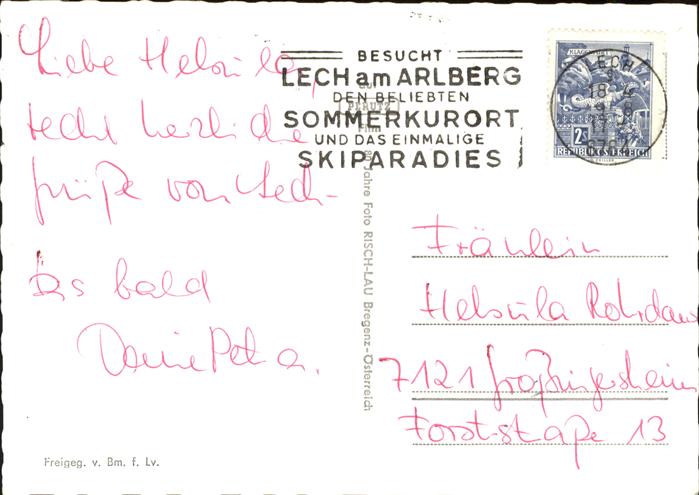 Liebe Helsula,
recht herzliche
grüße von Lech-
Bis bald
Deine Petra.
BESUCHT
LECH am ARLBERG
DEN BELIEBTEN
SOMMERKURORT
UND DAS EINMALIGE
SKIPARADIES
LECH
18-4
2S
REPUBLIK ÖSTERREICH
PERUTZ
Film
80 Jahre Foto RISCH-LAU Bregenz-Österreich
Fräulein
Helsula Rohdaus
7121 Großingersheim
Forststraße 13
Freigeg. v. Bm. f. Lv.